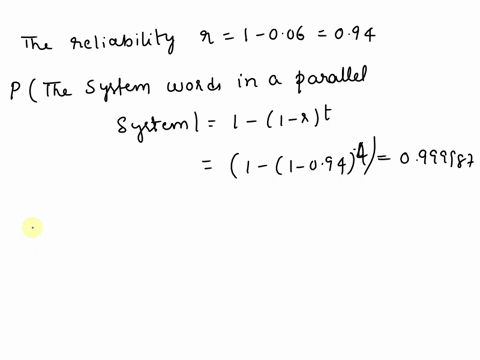 The reliability r = 1 - 0.06 = 0.94
P ( The System words in a parallel
System | = 1 - (1-r)t
= (1 - (1-0.94)^4) = 0.999987